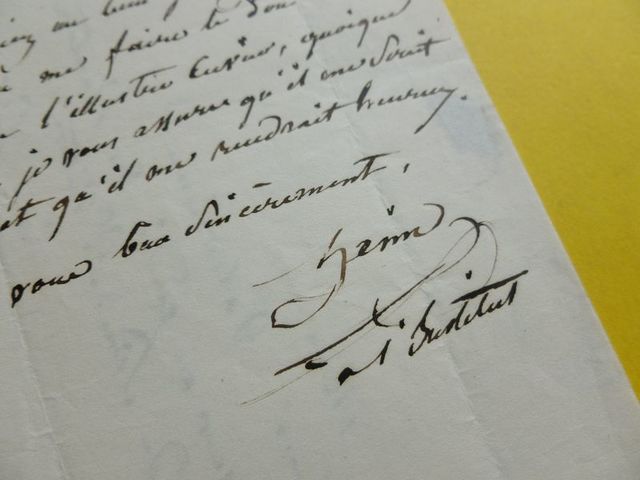 me faire le don
l'illustre Cuvier, quoique
je vous assure qu'il me serait
et qu'il me rendrait heureux.
vous bien sincèrement,
à l'institut